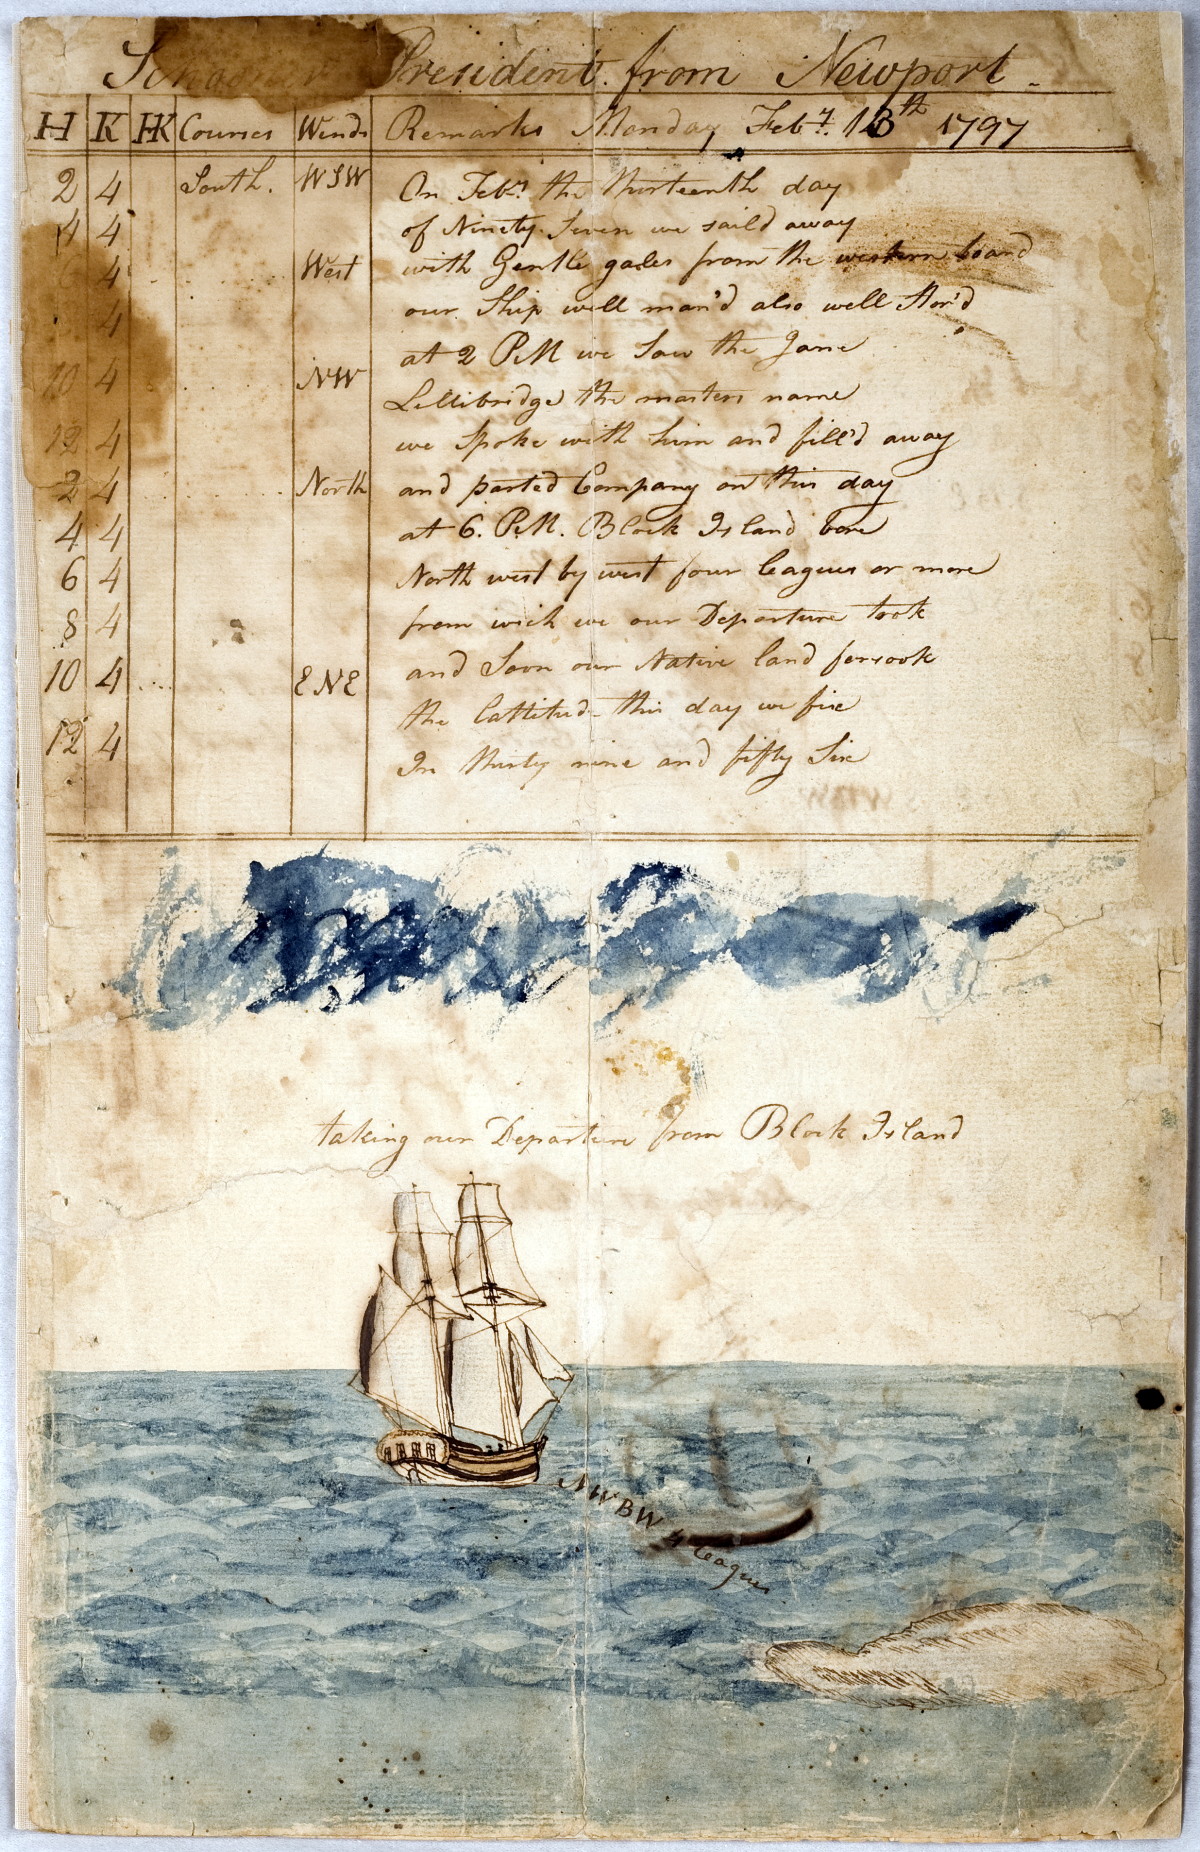 Schooner President from Newport
H K HK Courses Winds Remarks Monday Feby. 13th 1797
2 4 South. WSW On Feby. the thirteenth day
4 4 of Ninety Seven we saild away
6 4 West with Gentle gales from the western board
4 our Ship well man'd also well Stor'd
at 2 PM we Saw the Jane
10 4 NW Lillibridge the masters name
12 4 we Spoke with him and fill'd away
2 4 North and parted Company on this day
4 4 at 6. P.M. Block Island bore
6 4 North west by west four leagues or more
8 4 from wich we our Departure took
10 4 ENE and Soon our Native land forsook
the Lattitud this day we fix
12 4 In thirty nine and fifty Six
taking our Departure from Block Island
NWBW 4 leagues